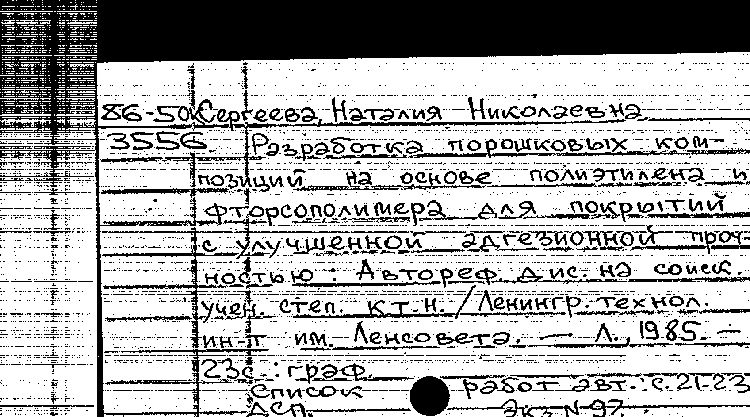 86-50 Сергеева, Наталия Николаевна
3556 Разработка порошковых ком-
позиций на основе полиэтилена и
фторсополимера для покрытий
с улучшенной адгезионной проч-
ностью : Автореф. дис. на соиск.
учен. степ. к.т.н. / Ленингр. технол.
ин-т им. Ленсовета. — Л., 1985. —
23с. : граф.
Список работ авт.: с. 21-23
ДСП. Экз N 97